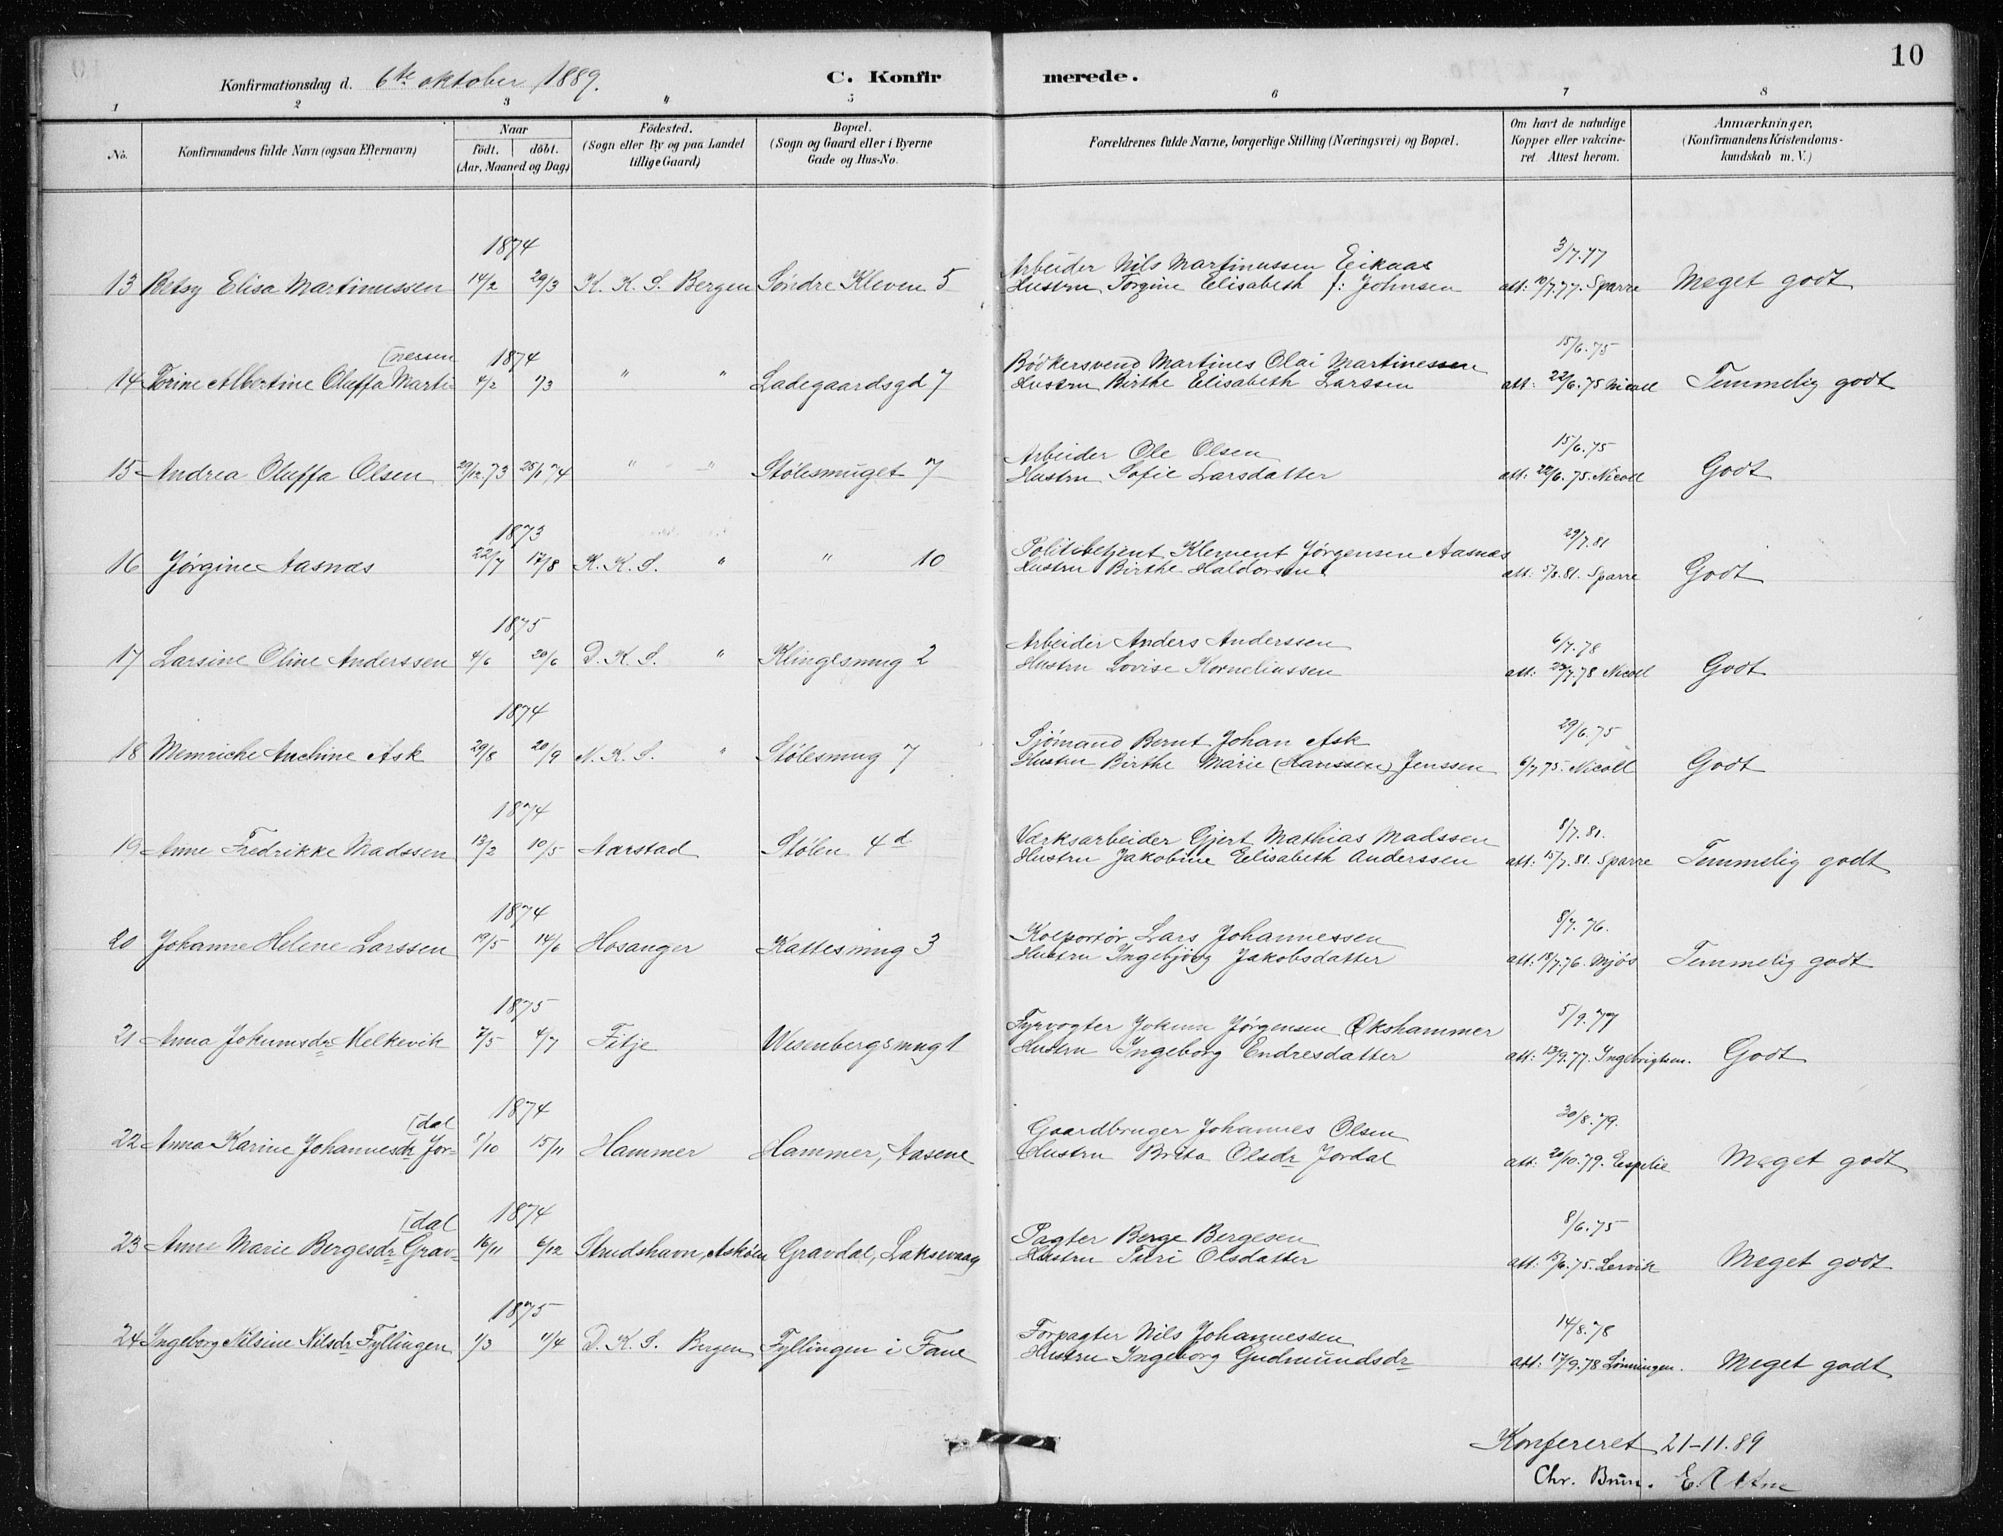 10
Konfirmationsdag d. 6te oktober 1889.
C. Konfirmerede.
1 2 3 " 5 6 7 8
No.
Konfirmandens fulde Navn (ogsaa Efternavn)
Naar
födt. döbt.
(Aar, Maaned og Dag)
Födested.
(Sogn eller By og paa Landet
tillige Gaard)
Bopæl.
(Sogn og Gaard eller i Byerne
Gade og Hus-No.
Forældrenes fulde Navne, borgerlige Stilling (Næringsvei) og Bopæl.
Om havt de naturlige
Kopper eller vaccine-
ret. Attest herom.
Anmærkninger.
(Konfirmandens Kristendoms-
kundskab m. V.)
1874
Arbeider Nils Martinussen Eikaas 3/7.77
13 Betsy Elisa Martinussen 14/2 29/3 K. K. S. Bergen Söndre Kleven 5 Hustru Torgine Elisabeth f: Johnsen att: 10/7.77. Sparre Meget godt
[nessen 1874
Bödkersvend Martines Olai Martinessen 15/6.75
14 Torine Albertine Oluffa Marti- 4/2 1/3 " " Ladegaardsgd 7 Hustru Birthe Elisabeth Larssen att: 22/6.75 Nicoll Temmelig godt
Arbeider Ole Olsen 15/6.75
15 Andrea Oluffa Olsen 29/12.73 25/1.74 " " Stølesmuget 7 Hustru Sofie Larsdatter att: 22/6.75. Nicoll Godt
1873
Politibetjent Klement Jørgensen Aasnæs 29/7.81
16 Jørgine Aasnæs 22/7 17/8 K. K. S. " " 10 Hustru Birthe Haldorsen att: 5/8.81. Sparre Godt
1875
Arbeider Anders Anderssen 6/7.78
17 Larsine Oline Anderssen 4/6 20/6 D. K. S. " Klingesmug 2 Hustru Lovise Korneliussen att: 22/7.78 Nicoll Godt
1874
Sjömand Bernt Johan Ask 29/6.75
18 Memriche Anchine Ask 29/8 20/9 N. K. S. " Stølesmug 7 Hustru Birthe Marie (Hanssen) Jenssen 6/7.75. Nicoll Godt
1874
Værksarbeider Gjert Mathias Madssen 8/7.81.
19 Anne Fredrikke Madssen 13/2 10/5 Aarstad Stølen 4d Hustru Jakobine Elisabeth Anderssen att: 15/7.81. Sparre Temmelig godt
1874
Kolportör Lars Johannessen 8/7.76.
20 Johanne Helene Larssen 19/5 14/6 Hosanger Kattesmug 3 Hustru Ingebjörg Jakobsdatter att: 18/7.76. Mjös Temmelig godt
1875
Fyrvogter Jokum Jørgensen Økshammer 5/9.77
21 Anna Jokumsdr Melkevik 7/5 4/7 Fitje Wesenbergsmug 1 Hustru Ingeborg Endresdatter att: 13/9.77. Ingebrigtsen. Godt
[dal 1874
Gaardbruger Johannes Olsen 20/8.79.
22 Anna Karine Johannesdr Jor- 8/10 15/11 Hammer Hammer, Aasene Hustru Brita Olsdr Jordal att: 20/10.79. Espelie Meget godt
[dal 1874
Pagter Berge Bergesen 8/6.75
23 Anne Marie Bergesdr Grav- 16/11 6/12 Strudshavn, Askøen Gravdal, Laksevaag Hustru Turi Olsdatter att: 15/6.75. Lervik Meget godt
1875
Forpagter Nils Johannessen 14/8.78
24 Ingeborg Nilsine Nilsdr Fyllingen 1/3 11/4 D. K. S. Bergen Fyllingen i Fane Hustru Ingeborg Gudmundsdr att: 17/9.78 Lönningen. Meget godt
Konfereret 21-11.89
Chr. Bruun.